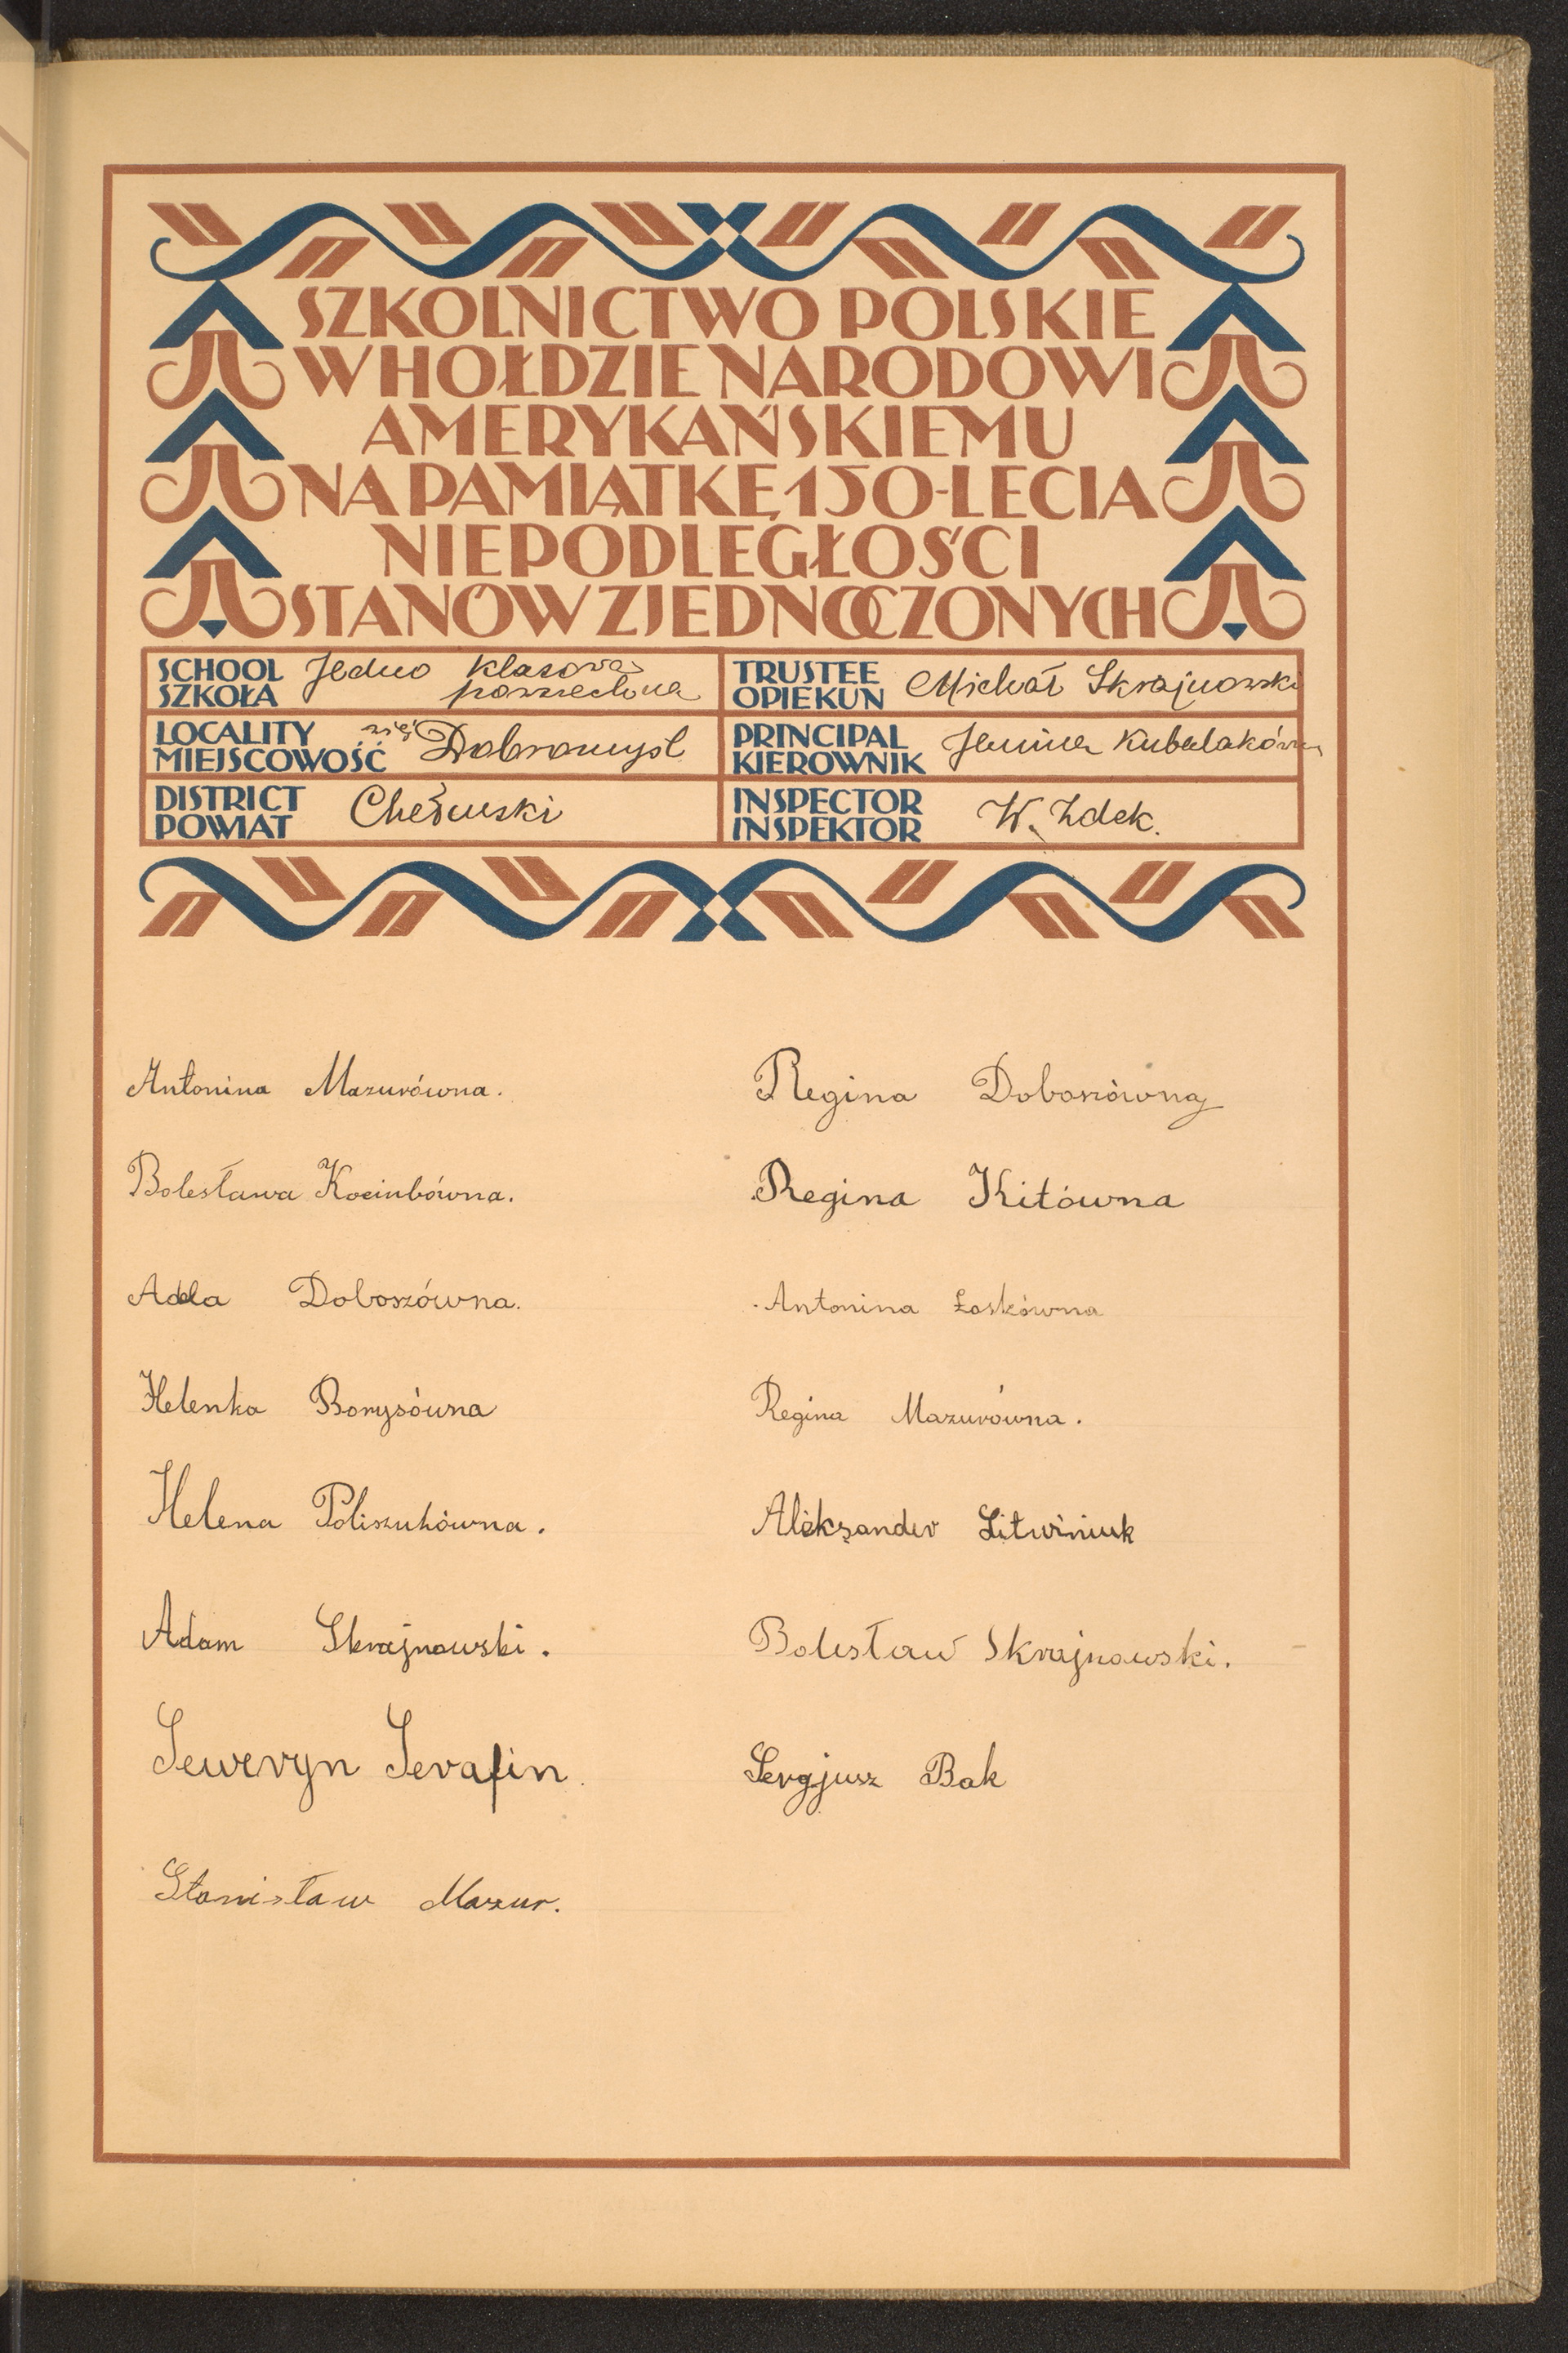 SZKOLNICTWO POLSKIE
W HOŁDZIE NARODOWI
AMERYKAŃSKIEMU
NA PAMIĄTKĘ 150-LECIA
NIEPODLEGŁOŚCI
STANÓW ZJEDNOCZONYCH
SCHOOL
SZKOŁA
Jedno klasowa
powszechna
TRUSTEE
OPIEKUN
Michał Skrajnowski
LOCALITY
MIEJSCOWOŚĆ
Dobromyśl
PRINCIPAL
KIEROWNIK
Janina Kubalakówna
DISTRICT
POWIAT
Chełmski
INSPECTOR
INSPEKTOR
W. Zdek.
Antonina Mazurówna.
Bolesława Kociubówna.
Adela Doboszówna.
Helenka Borysówna
Helena Poliszukówna.
Adam Skrajnowski.
Seweryn Serafin.
Stanisław Mazur.
Regina Doboszówna
Regina Kitówna
Antonina Łoskówna
Regina Mazurówna.
Aleksander Litwiniuk
Bolesław Skrajnowski.
Sergjusz Bak